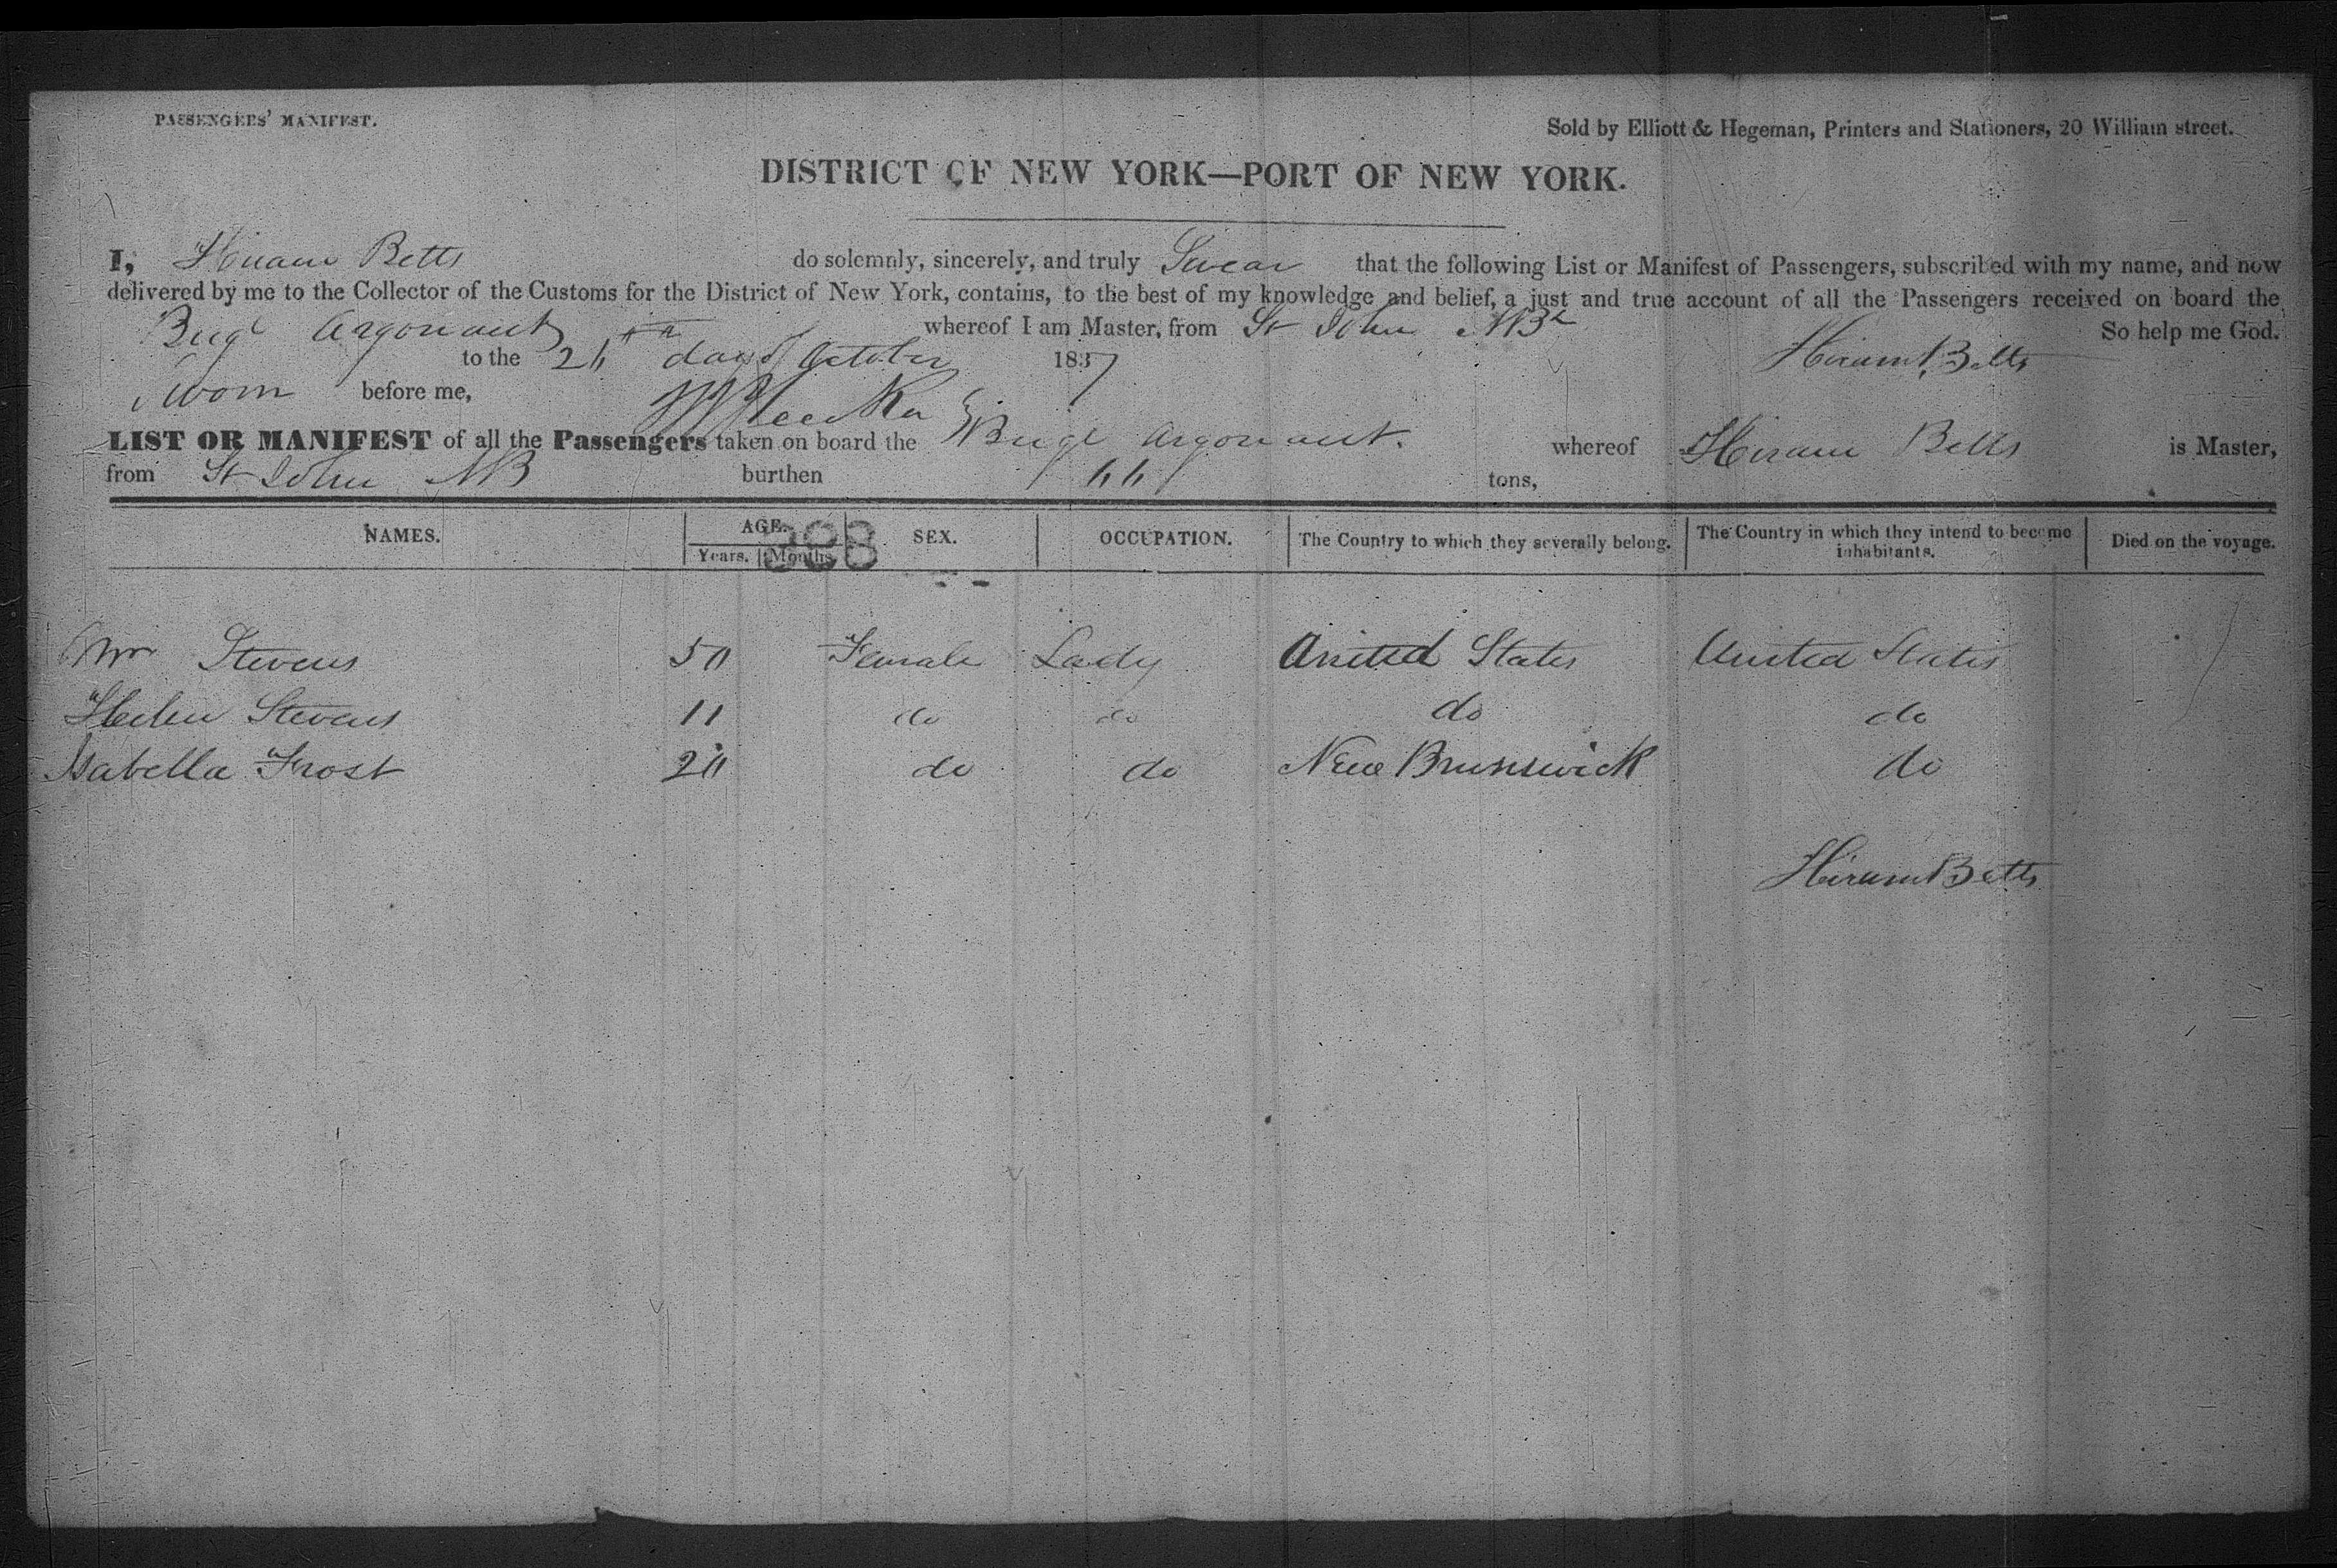 PASSENGERS' MANIFEST.
Sold by Elliott & Hegeman, Printers and Stationers, 20 William street.
DISTRICT OF NEW YORK—PORT OF NEW YORK.
I, Hiram Betts do solemnly, sincerely, and truly Swear that the following List or Manifest of Passengers, subscribed with my name, and now
delivered by me to the Collector of the Customs for the District of New York, contains, to the best of my knowledge and belief, a just and true account of all the Passengers received on board the
Brig Argonaut whereof I am Master, from St John NBk So help me God.
to the day of October 1837 Hiram Betts
Sworn before me,
LIST OR MANIFEST of all the Passengers taken on board the Brig Argonaut. whereof Hiram Betts is Master,
from St John NB burthen tons,
NAMES. AGE. Years. Months. SEX. OCCUPATION. The Country to which they severally belong. The Country in which they intend to become inhabitants. Died on the voyage.
Stevens 50 Female Lady United States United States
Helen Stevens 11 do do do do
Isabella Frost 20 do do New Brunswick do
Hiram Betts